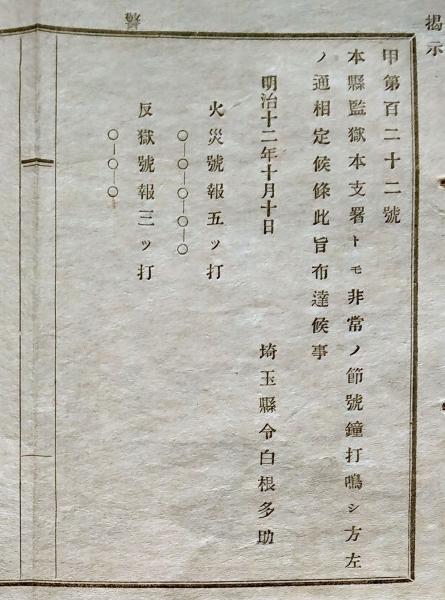 揭示
甲第百二十二號
本縣監獄本支署トモ非常ノ節號鐘打鳴シ方左
ノ通相定候條此旨布達候事
明治十二年十月十日
埼玉縣令白根多助
火災號報五ッ打
○―○―○―○―○
反獄號報三ッ打
○―○―○